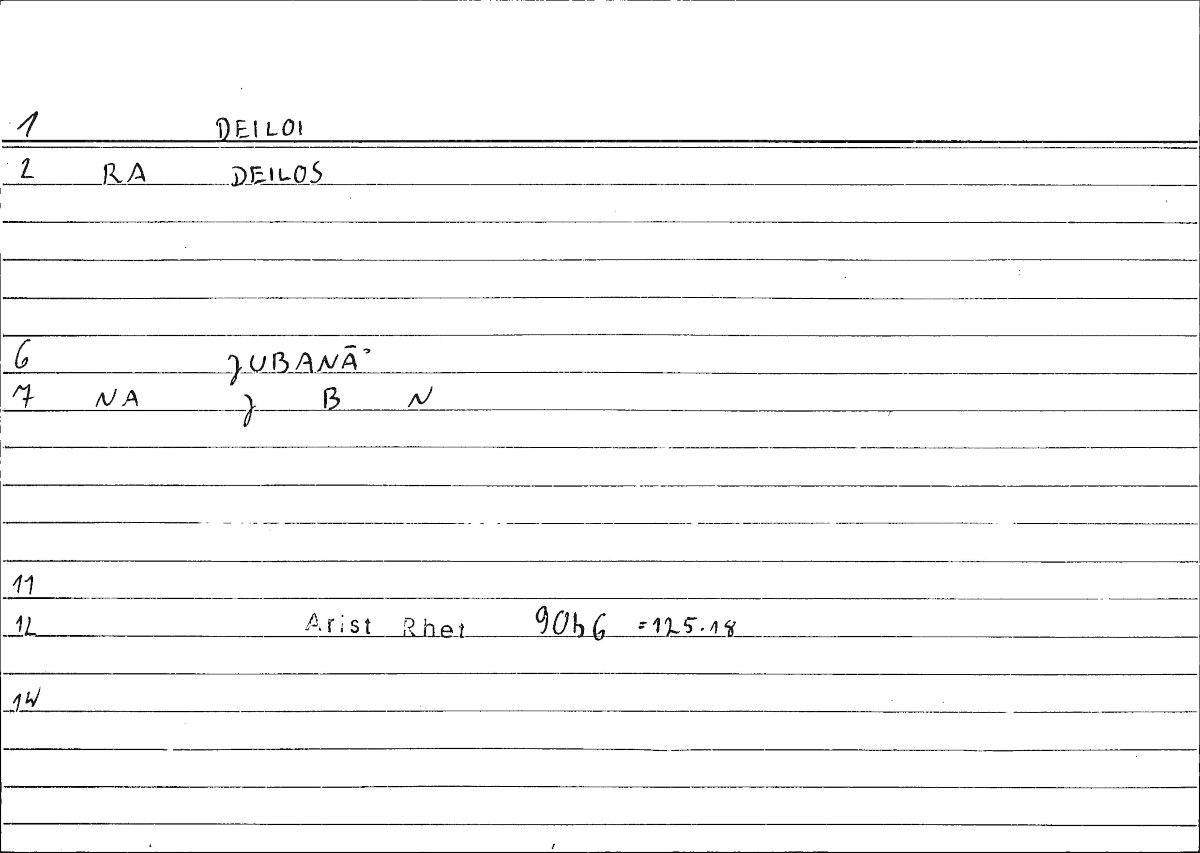 1 DEILOI
2 RA DEILOS
6 ȷUBANĀʾ
7 NA ȷ B N
11
12 Arist Rhet 90b6 =125.18
14